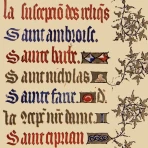 la suscepcion des reliqs
Saint ambroise.
Sainte barbe.
Saint nicholas
Sainte fare. D.
La concepcion nre dame
Saint ciprian